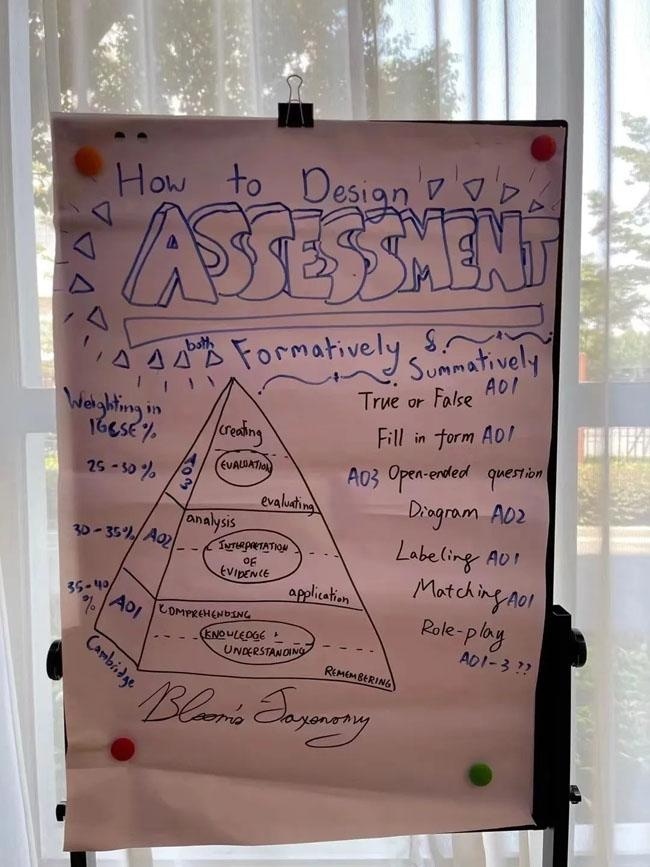 How to Design
ASSESSMENT
both Formatively & Summatively
Weighting in
IGCSE %
25 - 30 %
30 - 35%
35 - 40
%
AO3
AO2
AO1
Cambridge
creating
EVALUATION
evaluating
analysis
INTERPRETATION
OF
EVIDENCE
application
COMPREHENDING
KNOWLEDGE &
UNDERSTANDING
REMEMBERING
Bloom's Taxonomy
True or False AO1
Fill in form AO1
AO3 Open-ended question
Diagram AO2
Labeling AO1
Matching AO1
Role-play
AO1-3 ??